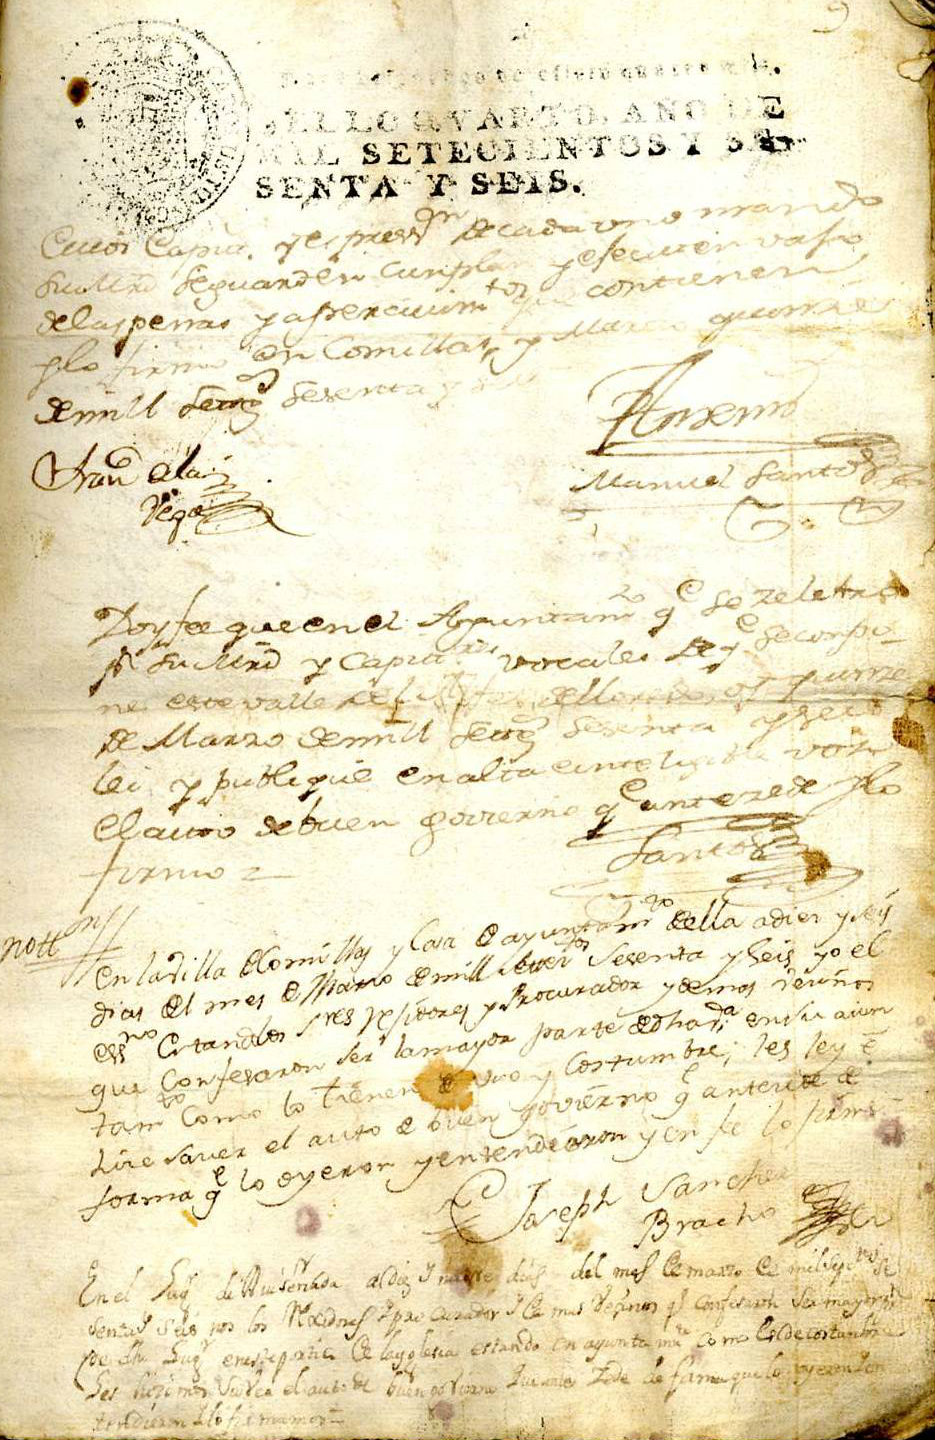 SELLO QVARTO, AÑO DE
MIL SETECIENTOS Y SE-
SENTA Y SEIS.
Cuios Capitt. y espress.on de cada uno mando
su Mrd se guarden cunplan y esecuten vaso
de las penas y apercivim.tos que contienen
y lo firmo en Comillas y Marzo
de mill setez.s sesenta y seis
Manuel Santos
Fran.co de la
Vega
Doy fee que en el Ayuntam.to q.e se zelebro
p.r su Mrd y Capitu.res vocales de q.e se conpo-
ne este valle de
de Marzo de mill setez.s sesenta y seis
lei y publique en alta e inteligible voz
el auto de buen govierno q.e antezede y lo
firmo =
Santos
nott.on
En la Villa de Comillas y Casa de ayuntam.to de ella a diez y seis
dias del mes de Marzo de mill setez.tos sesenta y seis yo el
ess.no estando los s.res rexidores y Procurador y demas vecinos
que confesaron ser la mayor parte de dha en su aiun
tam.to como lo tienen de uso y costumbre; les ley e
hize saver el auto de buen govierno q.e antecede de
forma q.e lo oyeron y entendieron y en fe lo firme
Joseph Sanchez
Bracho
En el Lug.r de Ruiseñada a diez y nueve dias del mes de marzo de mil setez.tos se
senta y seis nos los Rexidores y procurador y demas vezinos q.e confesaron ser mayor
de dho Lug.r en el portico de la yglesia estando en ayuntam.to como es de costunbre
les hizimos saver el auto de buen govierno que antezede de forma que lo oyeron y en
tendieron y lo firmamos =